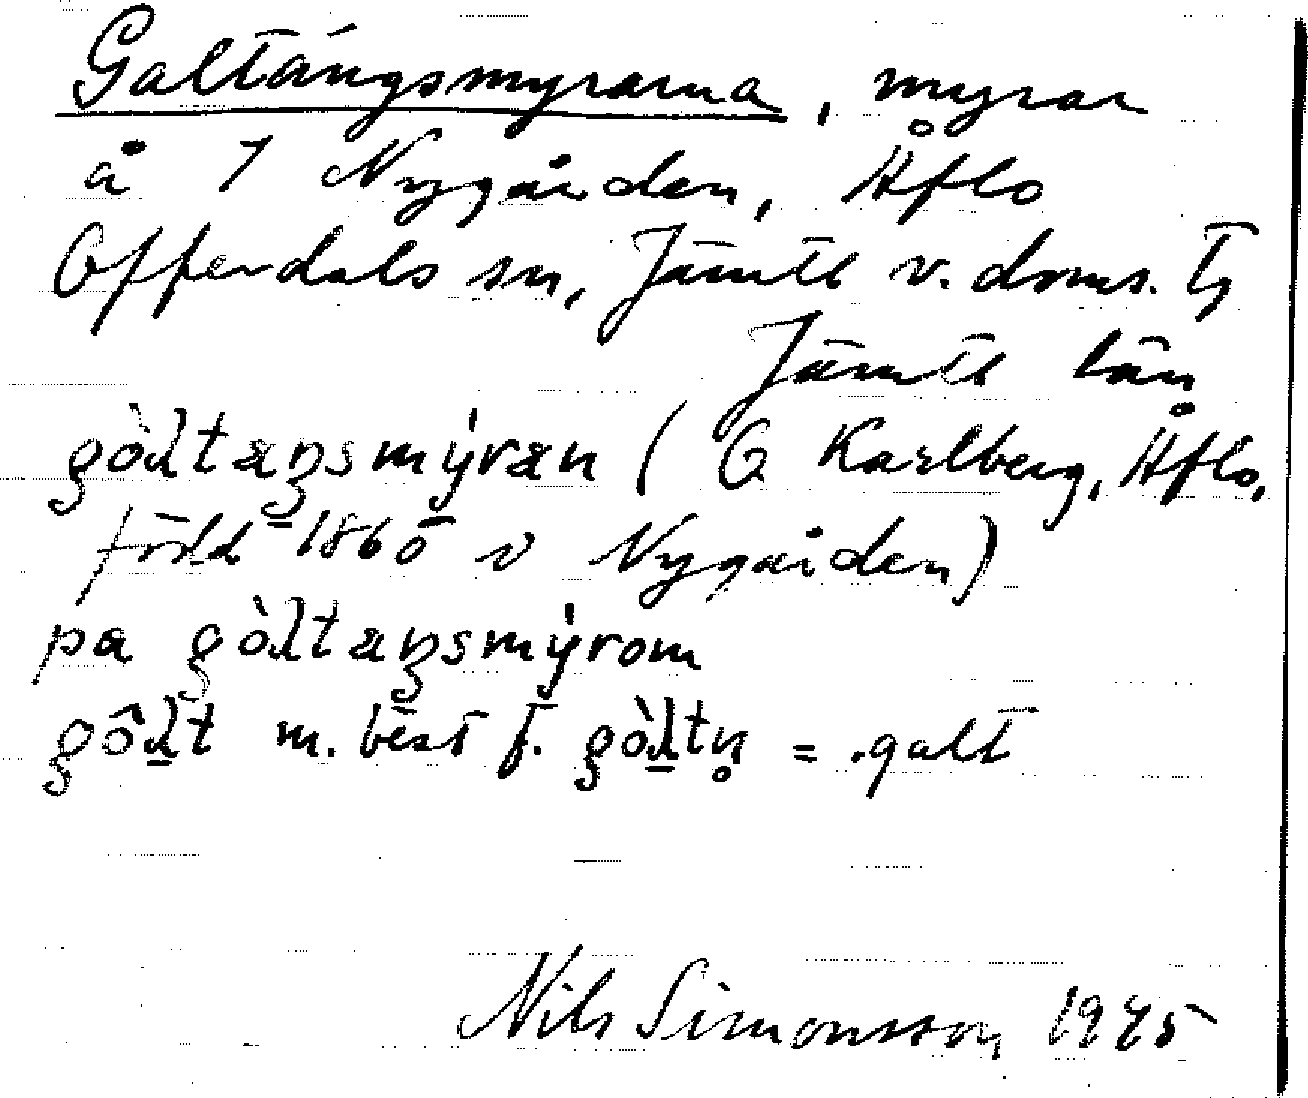 Galtängsmyrarna, myrar
å 1 Nygården, Åflo
Offerdals sn, Jämtl v. doms. tg
Jämtl län
gòltæŋsmýræn (G Karlberg, Åflo,
född 1860 v Nygården)
pa gòltæŋsmýrom
gôlt m. best f. gòltn̥ = galt
Nils Simonsson 1945